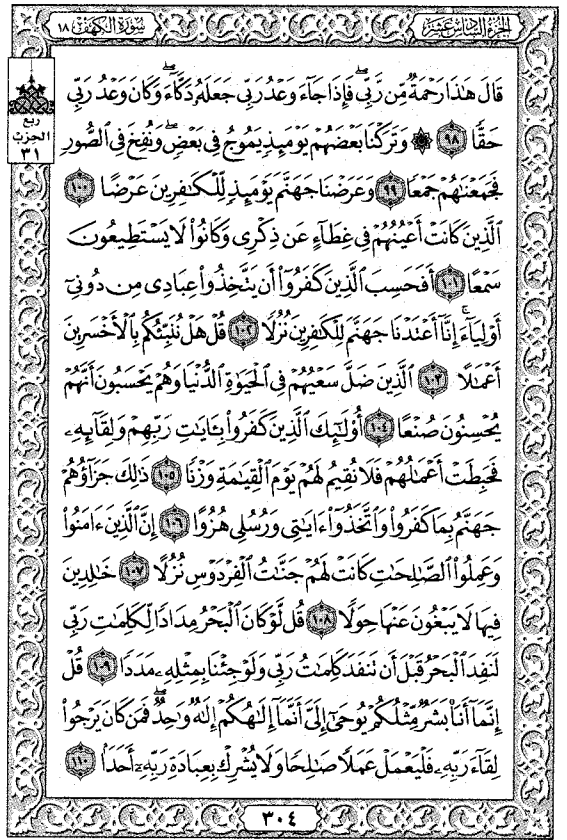 الجزء السادس عشر
سورة الكهف ١٨
ربع
الحزب
٣١
قَالَ هَٰذَا رَحْمَةٌ مِّن رَّبِّي ۖ فَإِذَا جَآءَ وَعْدُ رَبِّي جَعَلَهُۥ دَكَّآءَ ۖ وَكَانَ وَعْدُ رَبِّي
حَقًّا ٩٨ ۞ وَتَرَكْنَا بَعْضَهُمْ يَوْمَئِذٍ يَمُوجُ فِي بَعْضٍ ۖ وَنُفِخَ فِي ٱلصُّورِ
فَجَمَعْنَٰهُمْ جَمْعًا ٩٩ وَعَرَضْنَا جَهَنَّمَ يَوْمَئِذٍ لِّلْكَٰفِرِينَ عَرْضًا ١٠٠
ٱلَّذِينَ كَانَتْ أَعْيُنُهُمْ فِي غِطَآءٍ عَن ذِكْرِي وَكَانُوا۟ لَا يَسْتَطِيعُونَ
سَمْعًا ١٠١ أَفَحَسِبَ ٱلَّذِينَ كَفَرُوٓا۟ أَن يَتَّخِذُوا۟ عِبَادِي مِن دُونِيٓ
أَوْلِيَآءَ ۚ إِنَّآ أَعْتَدْنَا جَهَنَّمَ لِلْكَٰفِرِينَ نُزُلًا ١٠٢ قُلْ هَلْ نُنَبِّئُكُم بِٱلْأَخْسَرِينَ
أَعْمَٰلًا ١٠٣ ٱلَّذِينَ ضَلَّ سَعْيُهُمْ فِي ٱلْحَيَوٰةِ ٱلدُّنْيَا وَهُمْ يَحْسَبُونَ أَنَّهُمْ
يُحْسِنُونَ صُنْعًا ١٠٤ أُو۟لَٰٓئِكَ ٱلَّذِينَ كَفَرُوا۟ بِـَٔايَٰتِ رَبِّهِمْ وَلِقَآئِهِۦ
فَحَبِطَتْ أَعْمَٰلُهُمْ فَلَا نُقِيمُ لَهُمْ يَوْمَ ٱلْقِيَٰمَةِ وَزْنًا ١٠٥ ذَٰلِكَ جَزَآؤُهُمْ
جَهَنَّمُ بِمَا كَفَرُوا۟ وَٱتَّخَذُوٓا۟ ءَايَٰتِي وَرُسُلِي هُزُوًا ١٠٦ إِنَّ ٱلَّذِينَ ءَامَنُوا۟
وَعَمِلُوا۟ ٱلصَّٰلِحَٰتِ كَانَتْ لَهُمْ جَنَّٰتُ ٱلْفِرْدَوْسِ نُزُلًا ١٠٧ خَٰلِدِينَ
فِيهَا لَا يَبْغُونَ عَنْهَا حِوَلًا ١٠٨ قُل لَّوْ كَانَ ٱلْبَحْرُ مِدَادًا لِّكَلِمَٰتِ رَبِّي
لَنَفِدَ ٱلْبَحْرُ قَبْلَ أَن تَنفَدَ كَلِمَٰتُ رَبِّي وَلَوْ جِئْنَا بِمِثْلِهِۦ مَدَدًا ١٠٩ قُلْ
إِنَّمَآ أَنَا۠ بَشَرٌ مِّثْلُكُمْ يُوحَىٰٓ إِلَيَّ أَنَّمَآ إِلَٰهُكُمْ إِلَٰهٌ وَٰحِدٌ ۖ فَمَن كَانَ يَرْجُوا۟
لِقَآءَ رَبِّهِۦ فَلْيَعْمَلْ عَمَلًا صَٰلِحًا وَلَا يُشْرِكْ بِعِبَادَةِ رَبِّهِۦٓ أَحَدًۢا ١١٠
٣٠٤